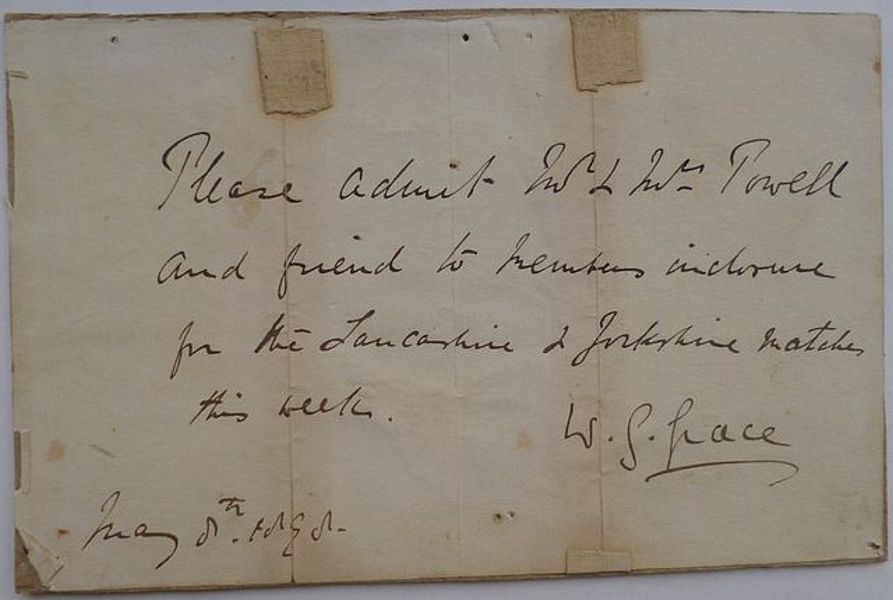 Please admit Mr & Mrs Powell
and friend to Members inclosure
for the Lancashire & Yorkshire matches
this week.
W. G. Grace
May 8th. 1898-